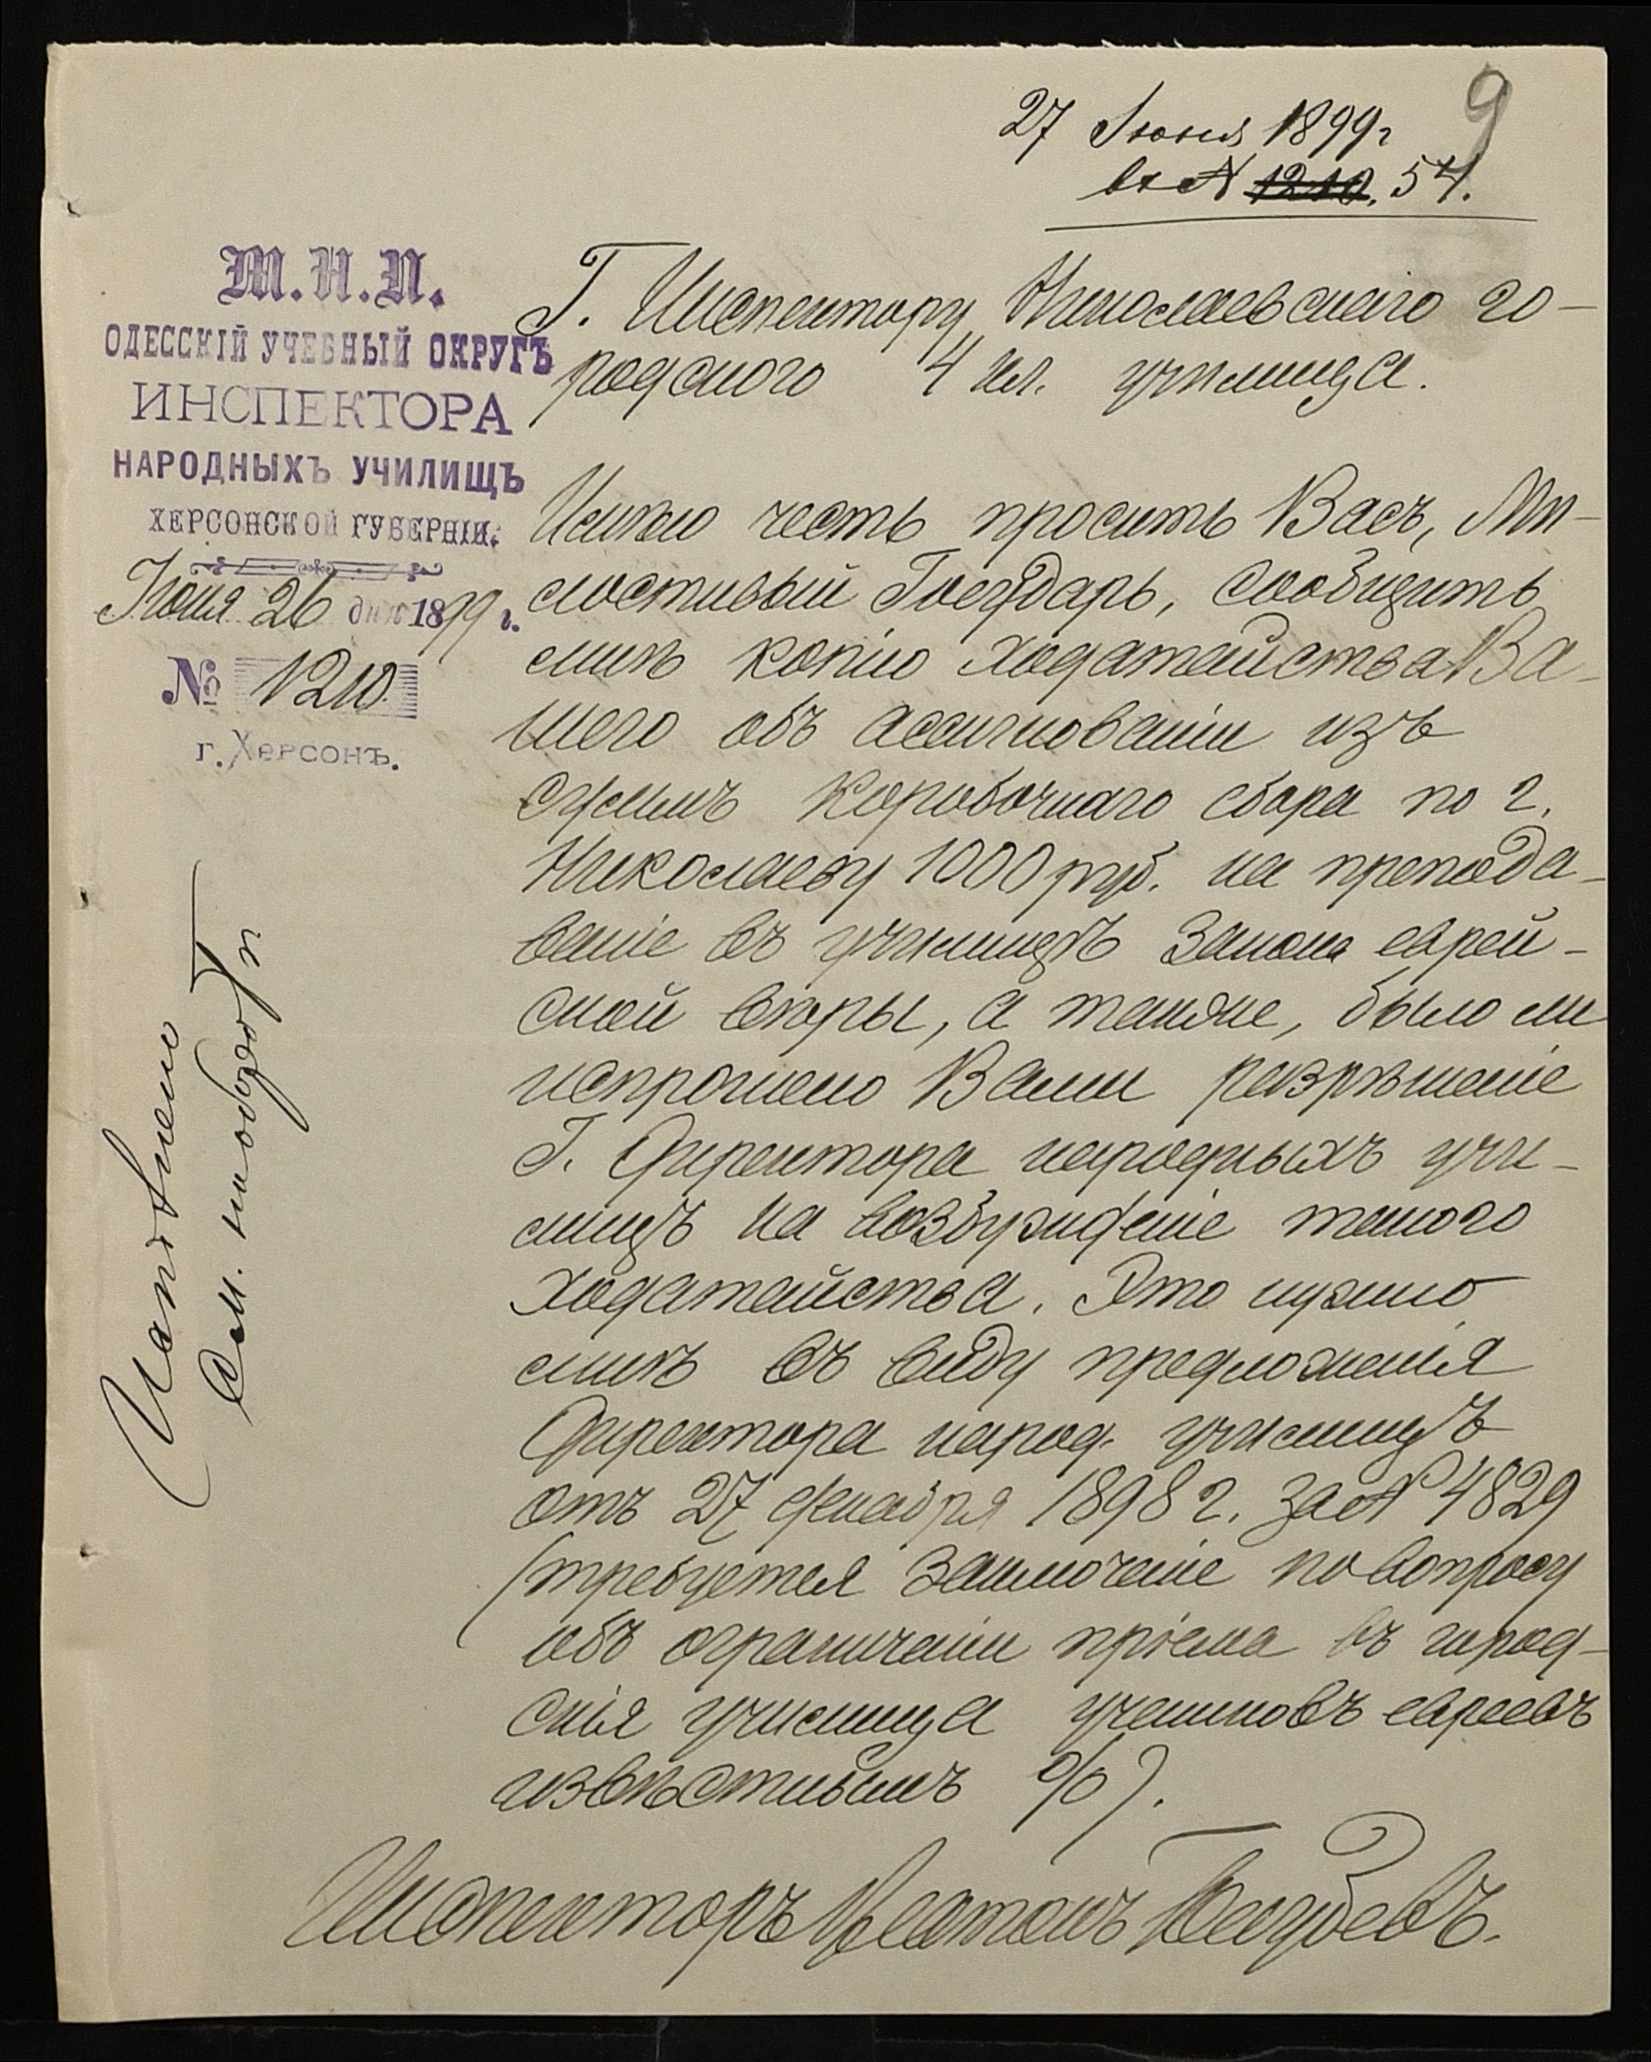 9
27 Июня 1899 г
вх № 1210. 54.
М.Н.П.
ОДЕССКІЙ УЧЕБНЫЙ ОКРУГЪ
ИНСПЕКТОРА
НАРОДНЫХЪ УЧИЛИЩЪ
ХЕРСОНСКОЙ ГУБЕРНІИ.
Іюня 26 дня 1899 г.
№ 1210
г. Херсонъ.
Г. Инспектору Николаевскаго го-
родского 4 кл. училища.
Имѣю честь просить Васъ, Ми-
лостивый Государь, сообщить
мнѣ копію ходатайства Ва-
шего объ ассигнованіи изъ
суммъ коробочнаго сбора по г.
Николаеву 1000 руб. на препода-
ваніе въ училищѣ Закона еврей-
ской вѣры, а также, было ли
испрошено Вами разрѣшеніе
Г. Директора народныхъ учи-
лищъ на возбужденіе такого
ходатайства. Это нужно
мнѣ въ виду предложенія
Директора народ. училищъ
отъ 27 декабря 1898 г. за № 4829
(требуется заключеніе по вопросу
объ ограниченіи пріема въ город-
скія училища учениковъ евреевъ
извѣстнымъ %).
Инспекторъ
Исполнено
См. на обороте